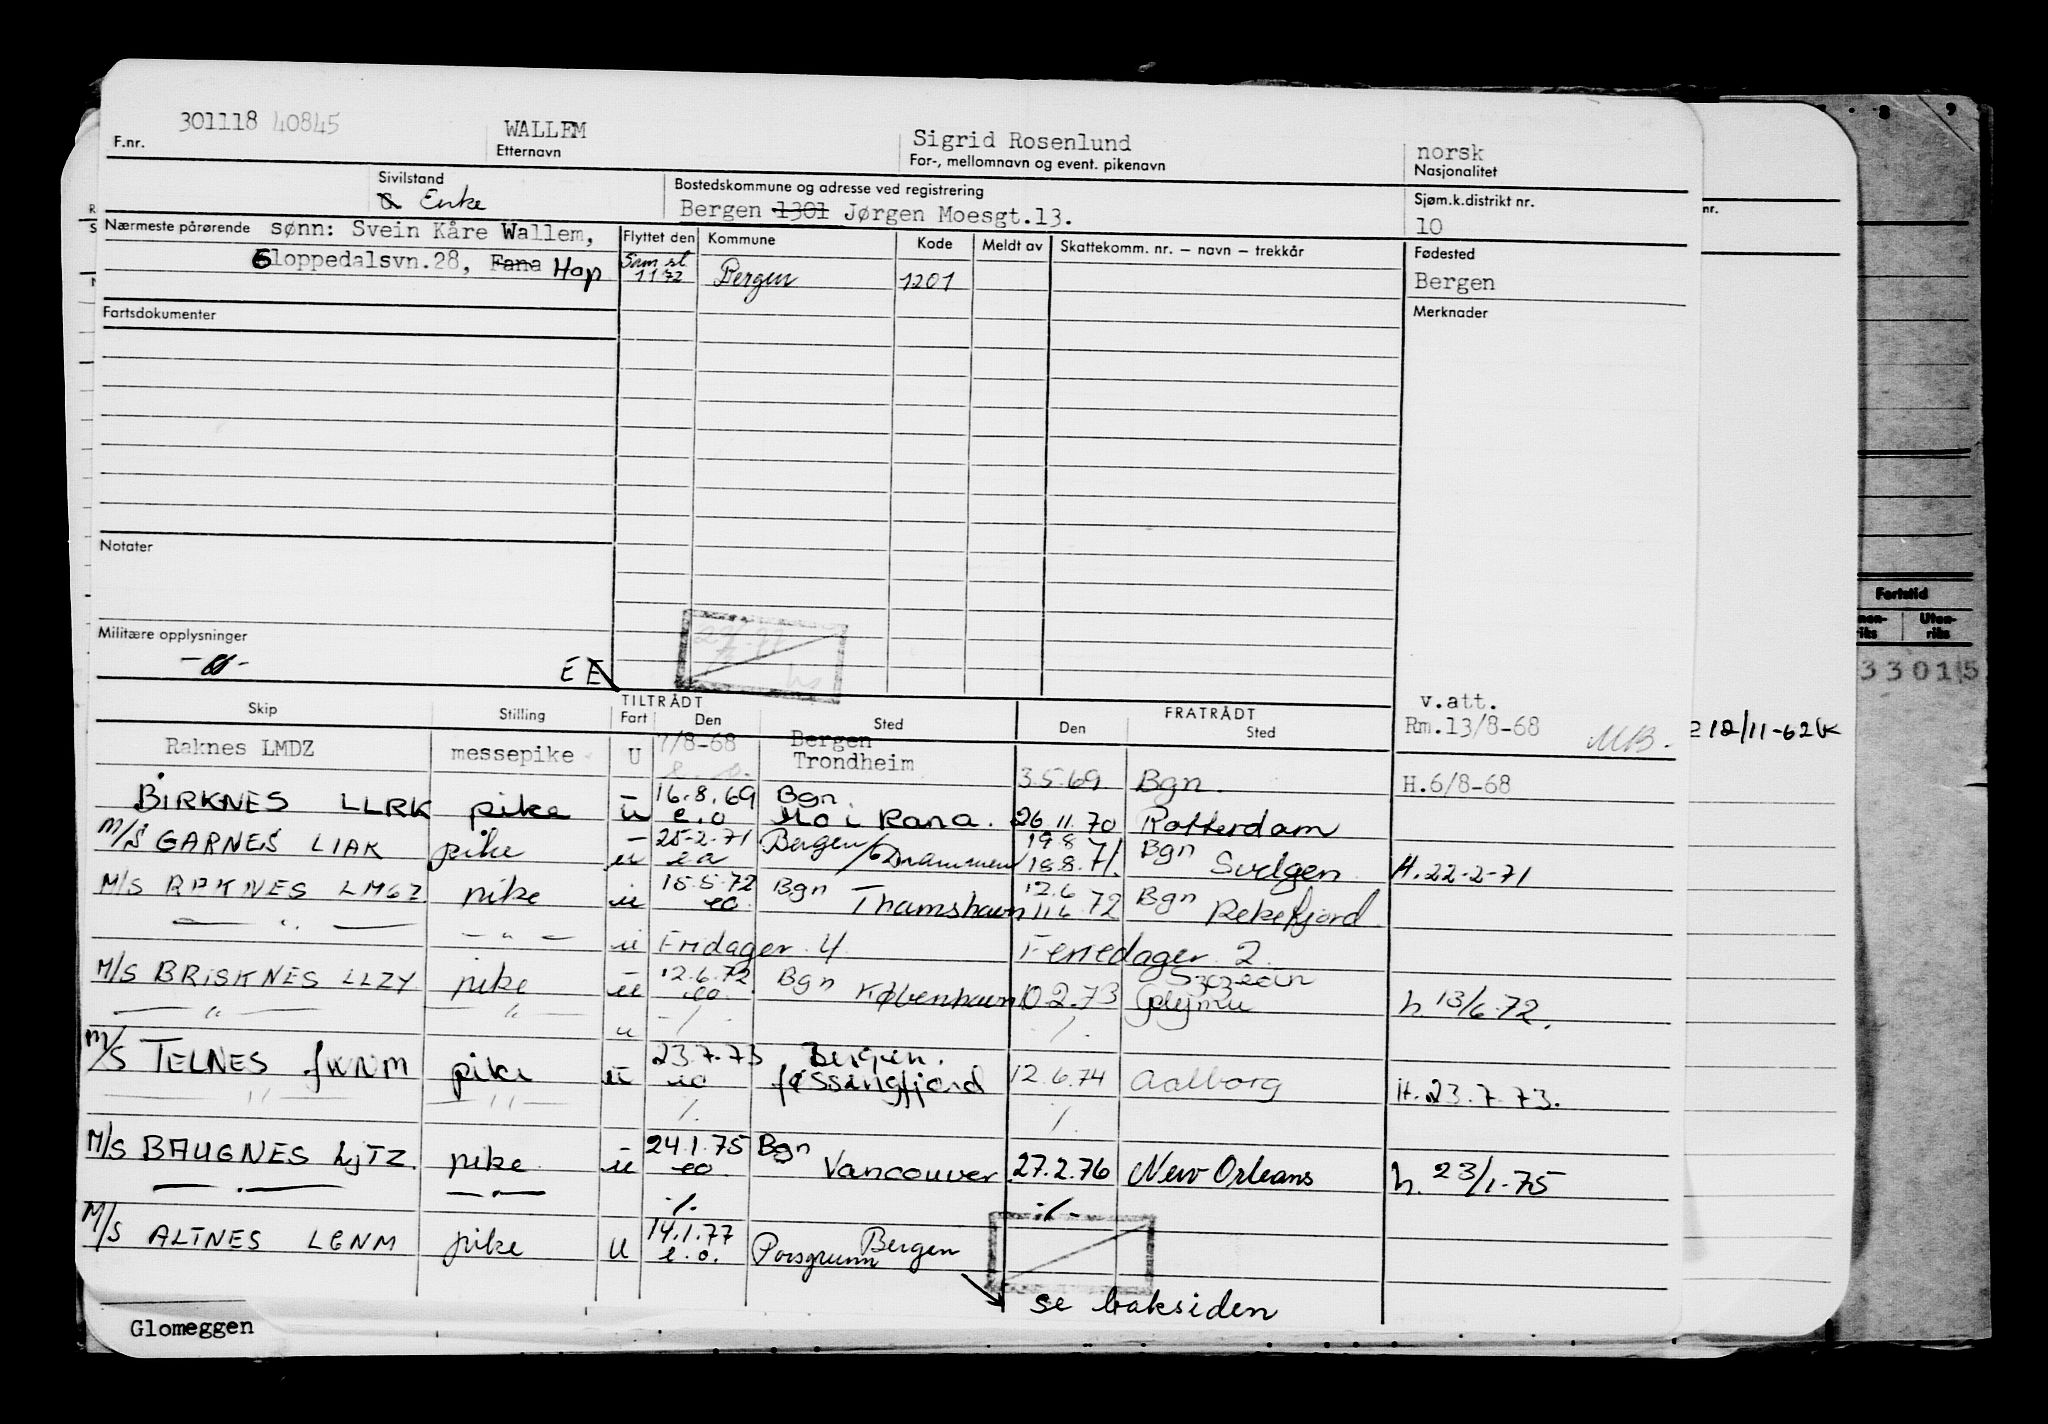 301118 40845
F.nr.
WALLEM
Etternavn
Sigrid Rosenlund
For-, mellomnavn og event. pikenavn
norsk
Nasjonalitet
Sivilstand
Enke
Bostedskommune og adresse ved registrering
Bergen 1301 Jørgen Moesgt.13.
Sjøm.k.distrikt nr.
10
Nærmeste pårørende sønn: Svein Kåre Wallem,
Sloppedalsvn.28, Fana Hop
Flyttet den Kommune Kode Meldt av Skattekomm. nr. – navn – trekkår
Sam st
1 1 72 Bergen 1201
Fødested
Bergen
Fartsdokumenter
Merknader
Notater
Militære opplysninger
E
v.att.
Skip Stilling TILTRÅDT Fart Den Sted FRATRÅDT Den Sted
Raknes LMDZ messepike U 7/8-68 Bergen Rm.13/8-68 MB.
Trondheim 3.5.69 Bgn. H.6/8-68
BIRKNES LLRK pike – 16.8.69 Bgn.
u e.o Mo i Rana. 26 11.70 Rotterdam
M/S GARNES LIAK pike – 25-2.71 Bergen 19.8 Bgn
u ea Drammen 18.8.71. Svelgen H.22-2-71
M/S RAKNES LMGZ pike u 15.5.72 Bgn 12.6 Bgn
eo. Thamshavn 11.6.72 Rekefjord
— " — — " — u Fridager. 4 Feriedager. 2.
M/S BRISKNES LLZY pike u 12.6.72 Bgn Szczecin
eo. København 10.2.73 h. 13/6.72.
— " — — " — u -/- ./.
M/S TELNES JWNM pike u 23.7.73 Bergen.
eo Jøssingfjord 12.6.74 Aalborg H.23.7.73.
— " — — " — ./. ./.
M/S BAUGNES LJTZ. pike u 24.1.75 Bgn
eo. Vancouver 27.2.76 New Orleans h. 23/1-75
— . — — . — ./. -/-
M/S ALTNES LGNM pike U 14.1.77 Bergen
e.o. Porsgrunn
se baksiden
Glomeggen
nr.
Fartstid
Uten-
riks
33015
12/11-62